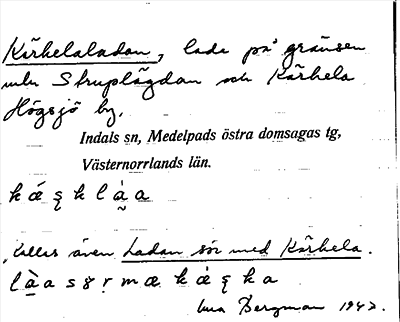 Kärhelaladan, lada på gränsen
mln Struplägdan och Kärhela
Högsjö by.
Indals sn, Medelpads östra domsagas tg,
Västernorrlands län.
Kallas även Ladan sör med Kärhela.
Bergman 1942.